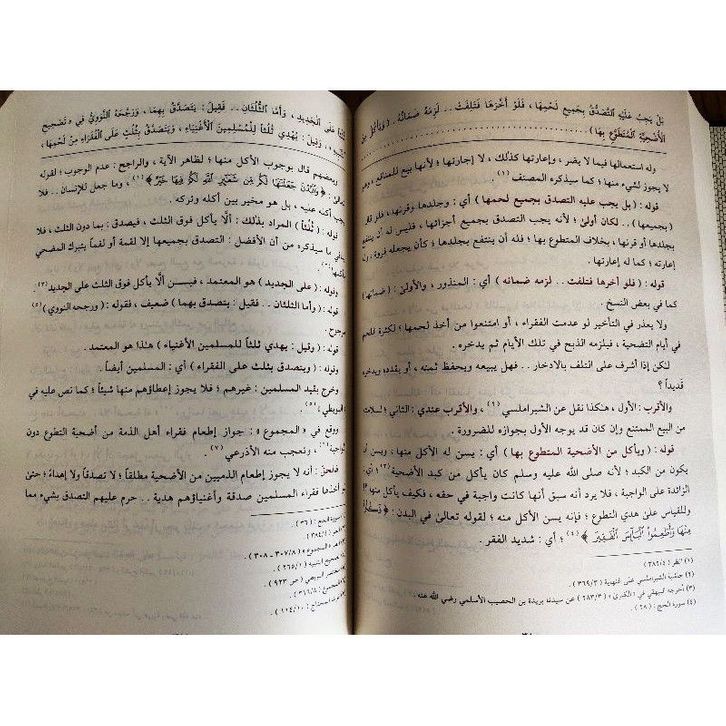 بَلْ يَجِبُ عَلَيْهِ التَّصَدُّقُ بِجَمِيعِ لَحْمِهَا ، فَلَوْ أَخَّرَهَا فَتَلِفَتْ .. لَزِمَهُ ضَمَانُهُ . ( وَيَأْكُلُ مِنَ
الْأُضْحِيَّةِ الْمُتَطَوَّعِ بِهَا )
وله استعمالها فيما لا يضر ، وإعارتها كذلك ، لا إجارتها ؛ لأنها بيع للمنافع ، وهو
لا يجوز لشيء منها ؛ كما سيذكره المصنف (١) .
قوله : ( بل يجب عليه التصدق بجميع لحمها ) أي : وجلدها وقرنها ، فلو قال
( بجميعها ) .. لكان أولىٰ ؛ لأنه يجب التصدق بجميع أجزائها ، فليس له أن ينتفع
بجلدها أو قرنها ، بخلاف المتطوع بها ؛ فله أن ينتفع بجلدها ؛ كأن يجعله فروة ، وله
إعارته ؛ كما له إعارتها .
قوله : ( فلو أخرها فتلفت .. لزمه ضمانه ) أي : المنذور ، والأولىٰ : ( ضمانها )
كما في بعض النسخ .
ولا يعذر في التأخير لو عدمت الفقراء ، أو امتنعوا من أخذ لحمها ؛ لكثرة اللحم
في أيام التضحية ، فيلزمه الذبح في تلك الأيام ثم يدخره .
لكن إذا أشرف على التلف بالادخار .. فهل يبيعه ويحفظ ثمنه ، أو يقدده ويدخره
قديداً ؟
والأقرب : الأول ، هكذا نقل عن الشبراملسي (٢) ، والأقرب عندي : الثاني ؛ لسلامته
من البيع الممتنع وإن كان قد يوجه الأول بجوازه للضرورة .
قوله : ( ويأكل من الأضحية المتطوع بها ) أي : يسن له الأكل منها ، ويسن أن
يكون من الكبد ؛ لأنه صلى الله عليه وسلم كان يأكل من كبد الأضحية (٣) أي :
الزائدة على الواجبة ، فلا يرد أنه سبق أنها كانت واجبة في حقه ، فكيف يأكل منها ؟!
وللقياس علىٰ هدي التطوع ؛ فإنه يسن الأكل منه ؛ لقوله تعالىٰ في البدن : ﴿ فَكُلُوا۟
مِنْهَا وَأَطْعِمُوا۟ ٱلْبَآئِسَ ٱلْفَقِيرَ ﴾ (٤) ؛ أي : شديد الفقر .
(١) انظر ( ٣٨٢/٤ ) .
(٢) حاشية الشبراملسي على النهاية ( ٣٦٩/٣ ) .
(٣) أخرجه البيهقي في « الكبرىٰ » ( ٢٨٣/٣ ) عن سيدنا بريدة بن الحصيب الأسلمي رضي الله عنه .
(٤) سورة الحج : ( ٢٨ ) .
ثُلُثاً عَلَى الْجَدِيدِ ، وَأَمَّا الثُّلُثَانِ .. فَقِيلَ : يَتَصَدَّقُ بِهِمَا ، وَرَجَّحَهُ النَّوَوِيُّ فِي « تَصْحِيحِ
، وَقِيلَ : يُهْدِي ثُلُثاً لِلْمُسْلِمِينَ الْأَغْنِيَاءِ ، وَيَتَصَدَّقُ بِثُلُثٍ عَلَى الْفُقَرَاءِ مِنْ لَحْمِهَا ،
وبعضهم قال بوجوب الأكل منها ؛ لظاهر الآية ، والراجح : عدم الوجوب ؛ لقوله
﴿ وَٱلْبُدْنَ جَعَلْنَـٰهَا لَكُم مِّن شَعَـٰٓئِرِ ٱللَّهِ لَكُمْ فِيهَا خَيْرٌ ﴾ (١) ، وما جعل للإنسان .. لا
يجب أكله عنيه ، بل هو مخير بين أكله وتركه .
قوله : ( ثلثاً ) المراد بذلك : ألَّا يأكل فوق الثلث ، فيصدق : بما دون الثلث ، فلا
ما سيذكره من أن الأفضل : التصدق بجميعها إلا لقمة أو لقماً يتبرك المضحي
وقوله : ( على الجديد ) هو المعتمد ، فيسن ألَّا يأكل فوق الثلث على الجديد
قوله : ( وأما الثلثان .. فقيل : يتصدق بهما ) ضعيف ، فقوله : ( ورجحه النووي ) (٥)
مرجوح .
قوله : ( وقيل : يهدي ثلثاً للمسلمين الأغنياء ) هذا هو المعتمد .
قوله : ( ويتصدق بثلث على الفقراء ) أي : المسلمين أيضاً .
وخرج بقيد المسلمين : غيرهم ؛ فلا يجوز إعطاؤهم منها شيئاً ؛ كما نص عليه في
البويطي
ووقع في « المجموع » : جواز إطعام فقراء أهل الذمة من أضحية التطوع دون
، وتعجب منه الأذرعي (٧) .
فالحق : أنه لا يجوز إطعام الذميين من الأضحية مطلقاً ؛ لا تصدقاً ولا إهداءً ؛ حتىٰ
أخذها فقراء المسلمين صدقة وأغنياؤهم هدية .. حرم عليهم التصدق بشيء مما
سورة الحج : ( ٣٦ ) .
( ٣٠٧/٨ - ٣٠٨ ) .
( ٢٦٥/١ ) .